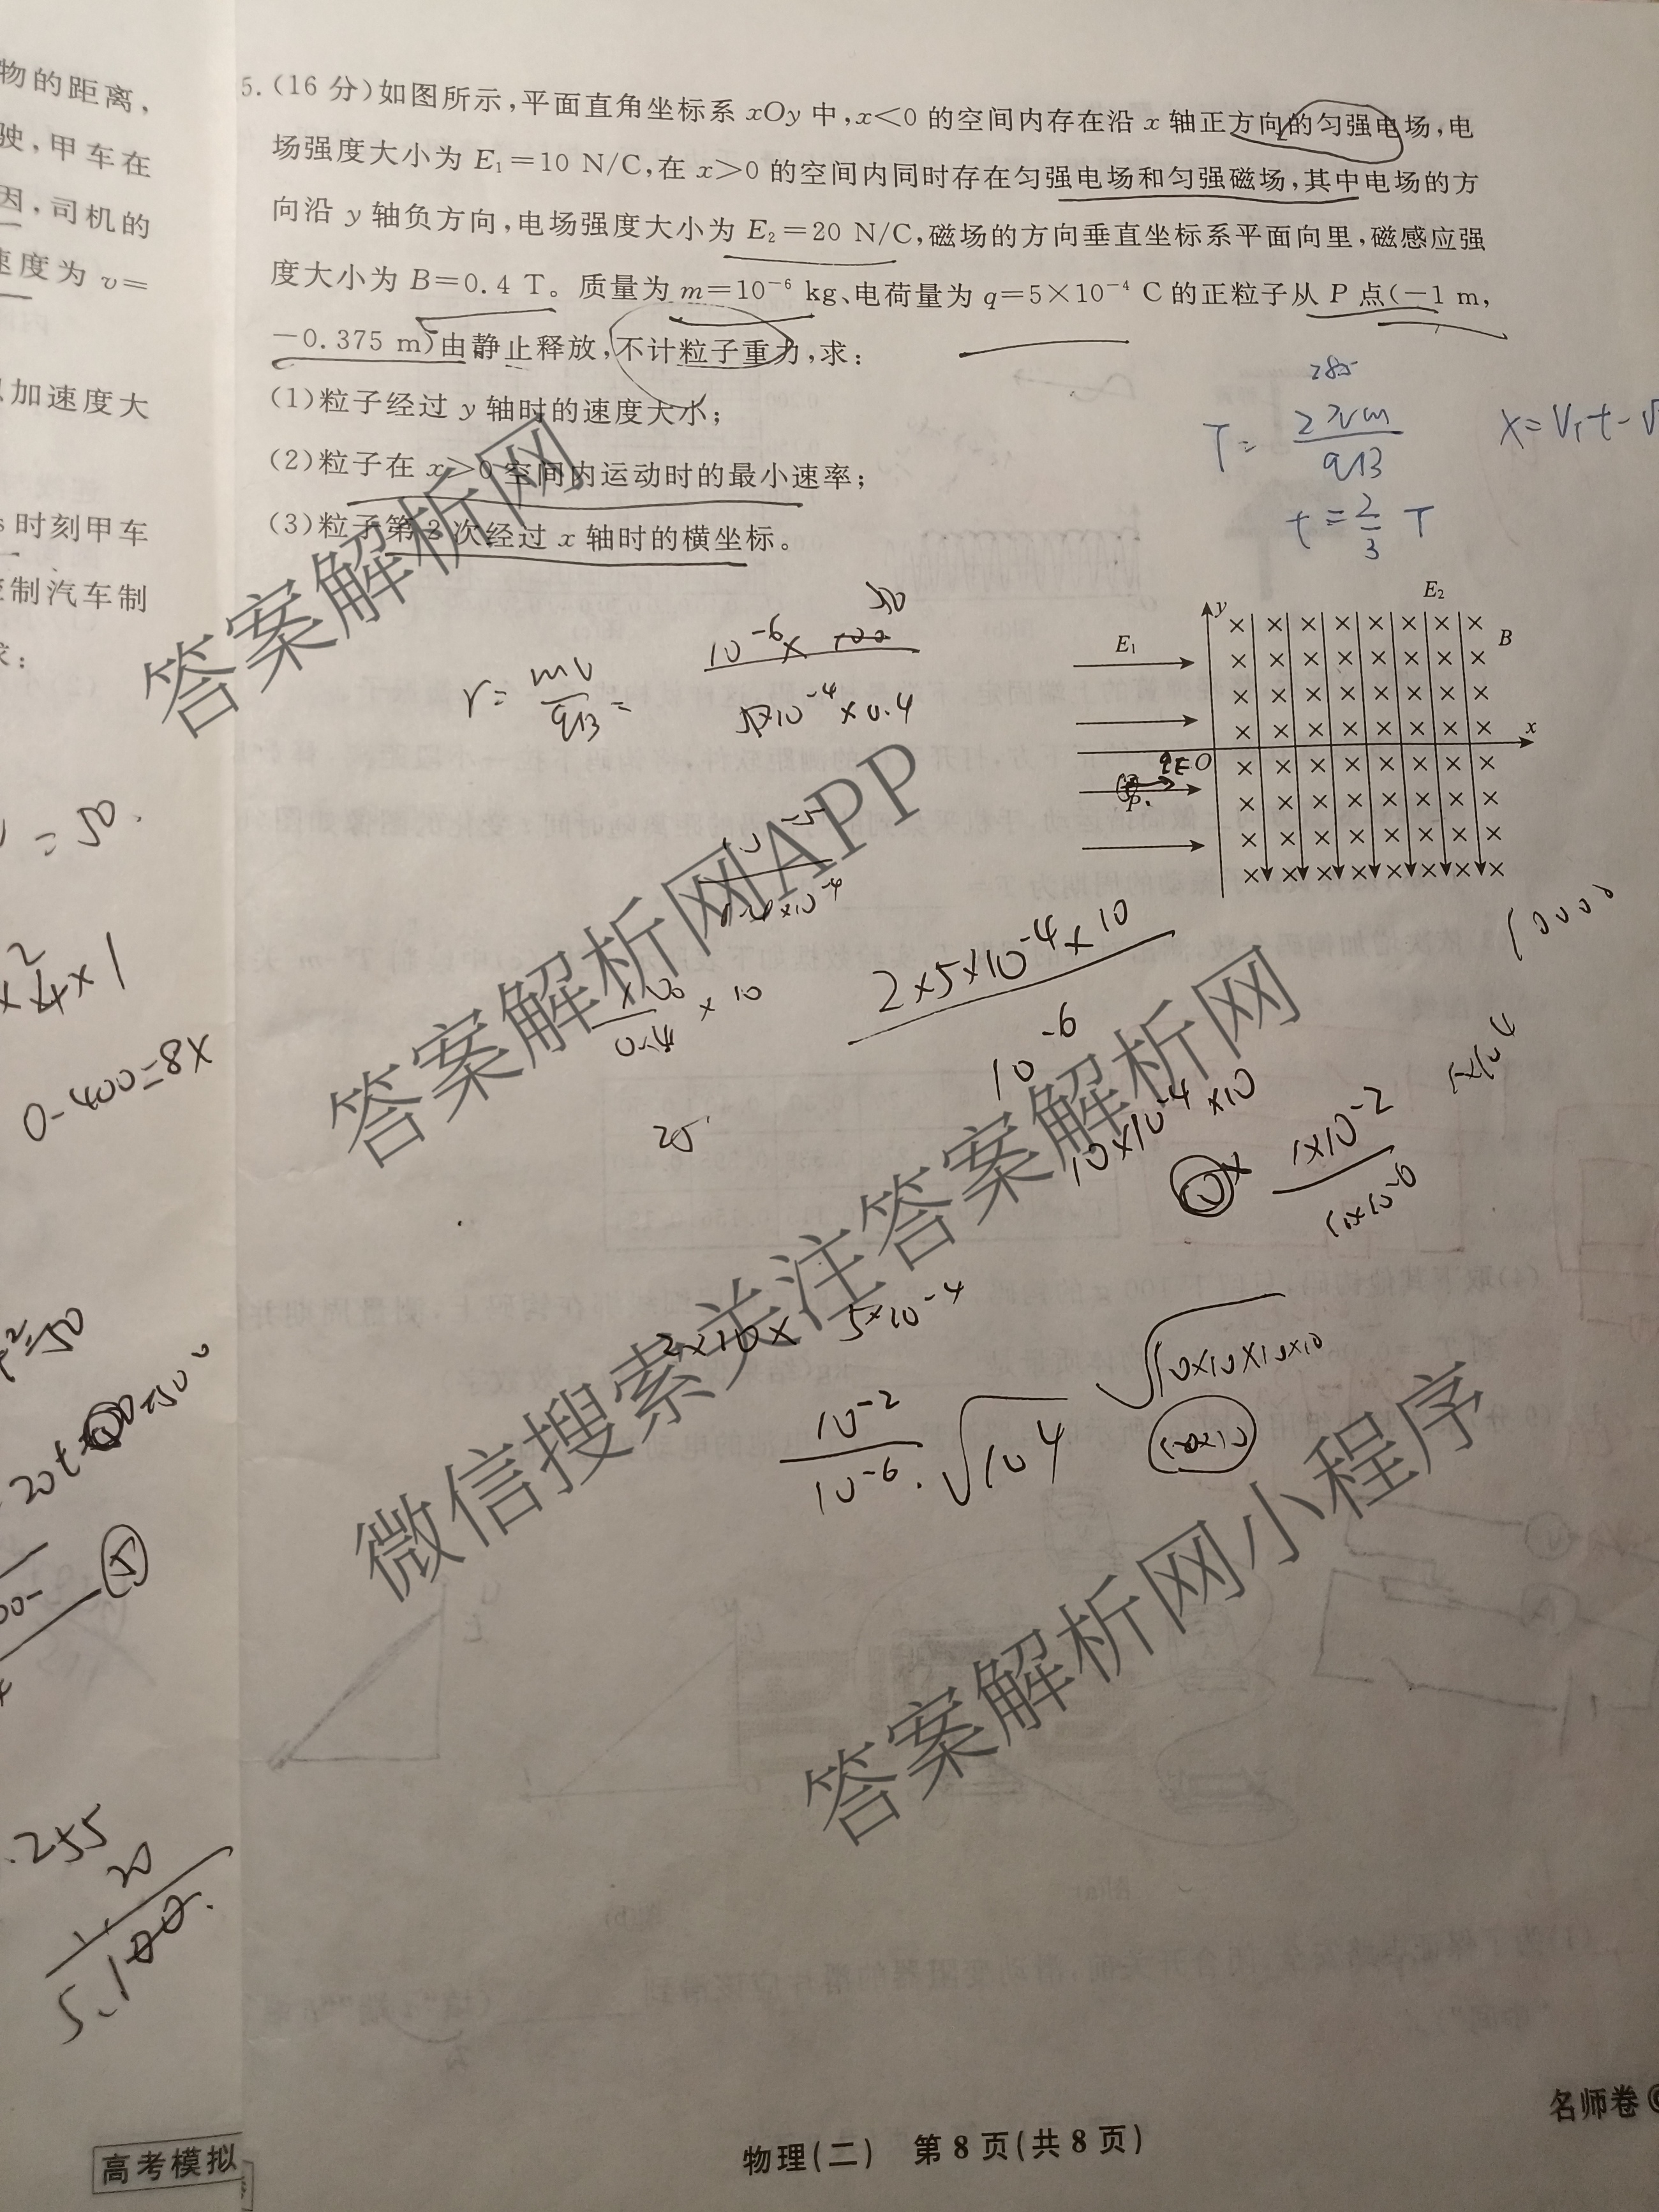 物的距离,
驶,甲车在
因,司机的
速度为 v=
加速度大
s时刻甲车
控制汽车制
求:
= 50.
0-400=8x
高考模拟
5.(16 分)如图所示,平面直角坐标系 xOy 中,x<0 的空间内存在沿 x 轴正方向的匀强电场,电
场强度大小为 E₁=10 N/C,在 x>0 的空间内同时存在匀强电场和匀强磁场,其中电场的方
向沿 y 轴负方向,电场强度大小为 E₂=20 N/C,磁场的方向垂直坐标系平面向里,磁感应强
度大小为 B=0.4 T。质量为 m=10⁻⁶ kg、电荷量为 q=5×10⁻⁴ C 的正粒子从 P 点(-1 m,
-0.375 m)由静止释放,不计粒子重力,求:
(1)粒子经过 y 轴时的速度大小;
(2)粒子在 x>0 空间内运动时的最小速率;
(3)粒子第 2 次经过 x 轴时的横坐标。
T= 2πm
qB
t = 2/3 T
r = mv
qB =
10⁻⁶ × 50
5×10⁻⁴ × 0.4
E₁
y
E₂
B
x
qE
O
P
2×5×10⁻⁴×10
10⁻⁶
10×10⁻⁴×10
1×10⁻²
25
2×10× 5×10⁻⁴
10⁻²
10⁻⁶
√10⁴
√10×10×10×10
10×10
10000
答案解析网
答案解析网APP
微信搜索关注答案解析网
答案解析网小程序
物理(二) 第 8 页(共 8 页)
名师卷